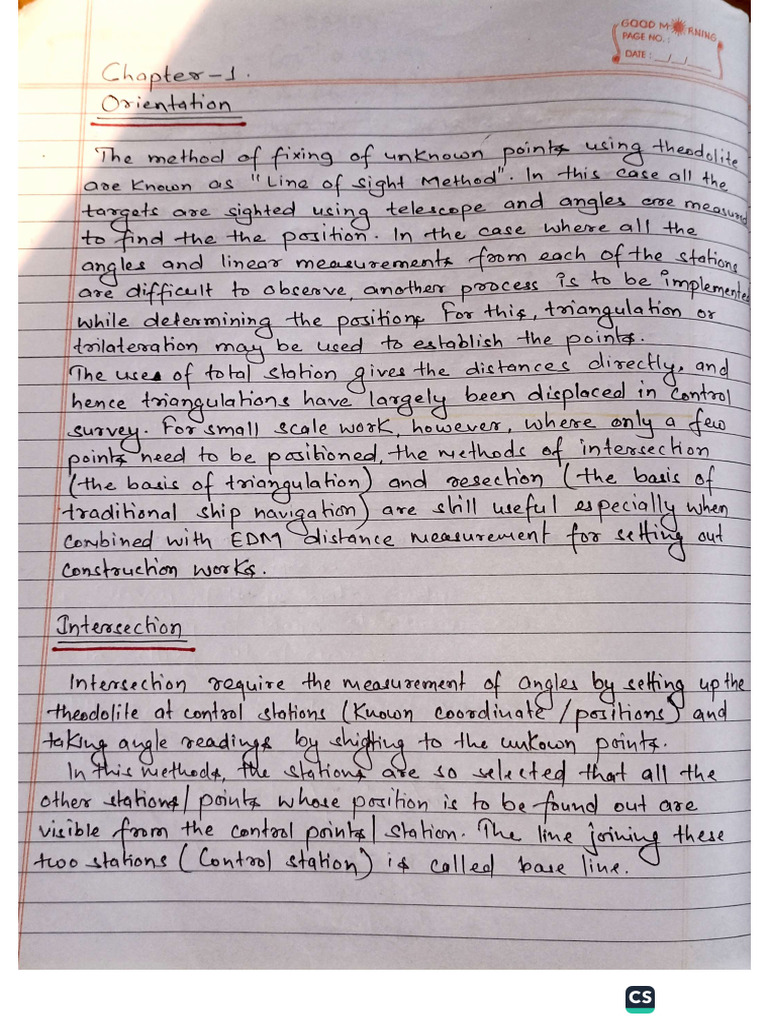 GOOD MORNING
PAGE NO.:
DATE: __/__/____
Chapter-1.
Orientation
The method of fixing of unknown points using theodolite
are known as "Line of sight Method". In this case all the
targets are sighted using telescope and angles are measured
to find the the position. In the case where all the
angles and linear measurements from each of the stations
are difficult to observe, another process is to be implemented
while determining the positions. For this, triangulation or
trilateration may be used to establish the points.
The uses of total station gives the distances directly, and
hence triangulations have largely been displaced in control
survey. For small scale work, however, where only a few
points need to be positioned, the methods of intersection
(the basis of triangulation) and resection (the basis of
traditional ship navigation) are still useful especially when
combined with EDM distance measurement for setting out
construction works.
Intersection
Intersection require the measurement of angles by setting up the
theodolite at control stations (known coordinate/positions) and
taking angle readings by shigting to the unkown points.
In this methods, the stations are so selected that all the
other stations/points whose position is to be found out are
visible from the control points/station. The line joining these
two stations (Control station) is called base line.
CS